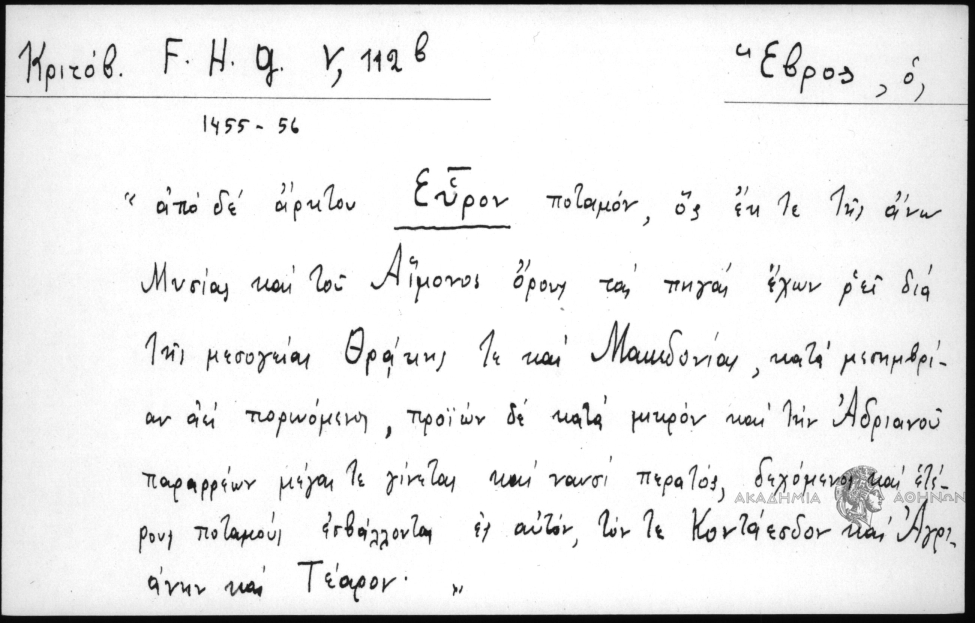 Κριτόβ. F. H. G. V, 112 β
Ἕβρος, ὁ,
1455-56
"ἀπό δέ ἄρκτου Εὗρον ποταμόν, ὅς ἐκ τε τῆς ἄνω
Μυσίας καί τοῦ Αἵμονος ὄρους τάς πηγάς ἔχων ῥεῖ διά
τῆς μεσογείας Θρᾴκης τε καί Μακεδονίας, κατά μεσημβρί-
αν ἀεί πορευόμενος, προϊών δέ κατά μικρόν καί τήν Ἀδριανοῦ
παραρρέων μέγας τε γίνεται καί ναυσί περατός, δεχόμενος καί ἑτέ-
ρους ποταμούς ἐσβάλλοντας ἐς αὐτόν, τόν τε Κοντάεσδον καί Ἀγρι-
άνην καί Τέαρον· "
ΑΚΑΔΗΜΙΑ ΑΘΗΝΩΝ